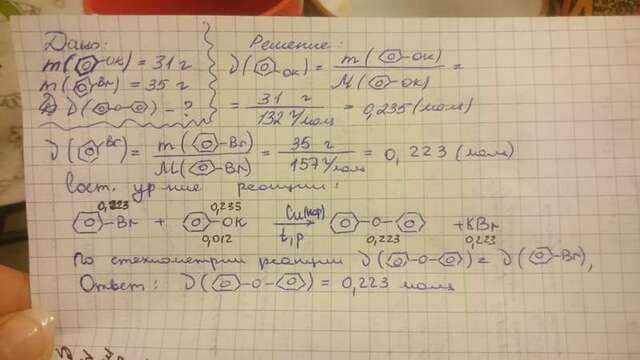 Дано:
m(⌬-OK) = 31 г
m(⌬-Br) = 35 г
ν(⌬-O-⌬) - ?
Решение:
ν(⌬-OK) = m(⌬-OK) / M(⌬-OK) =
= 31 г / 132 г/моль = 0,235 (моль)
ν(⌬-Br) = m(⌬-Br) / M(⌬-Br) = 35 г / 157 г/моль = 0,223 (моль)
Сост. ур-ние реакции:
0,223 0,235
⌬-Br + ⌬-OK Cu(пор) t,p → ⌬-O-⌬ + KBr
0,012 0,223 0,223
По стехиометрии реакции ν(⌬-O-⌬) = ν(⌬-Br),
Ответ: ν(⌬-O-⌬) = 0,223 моль